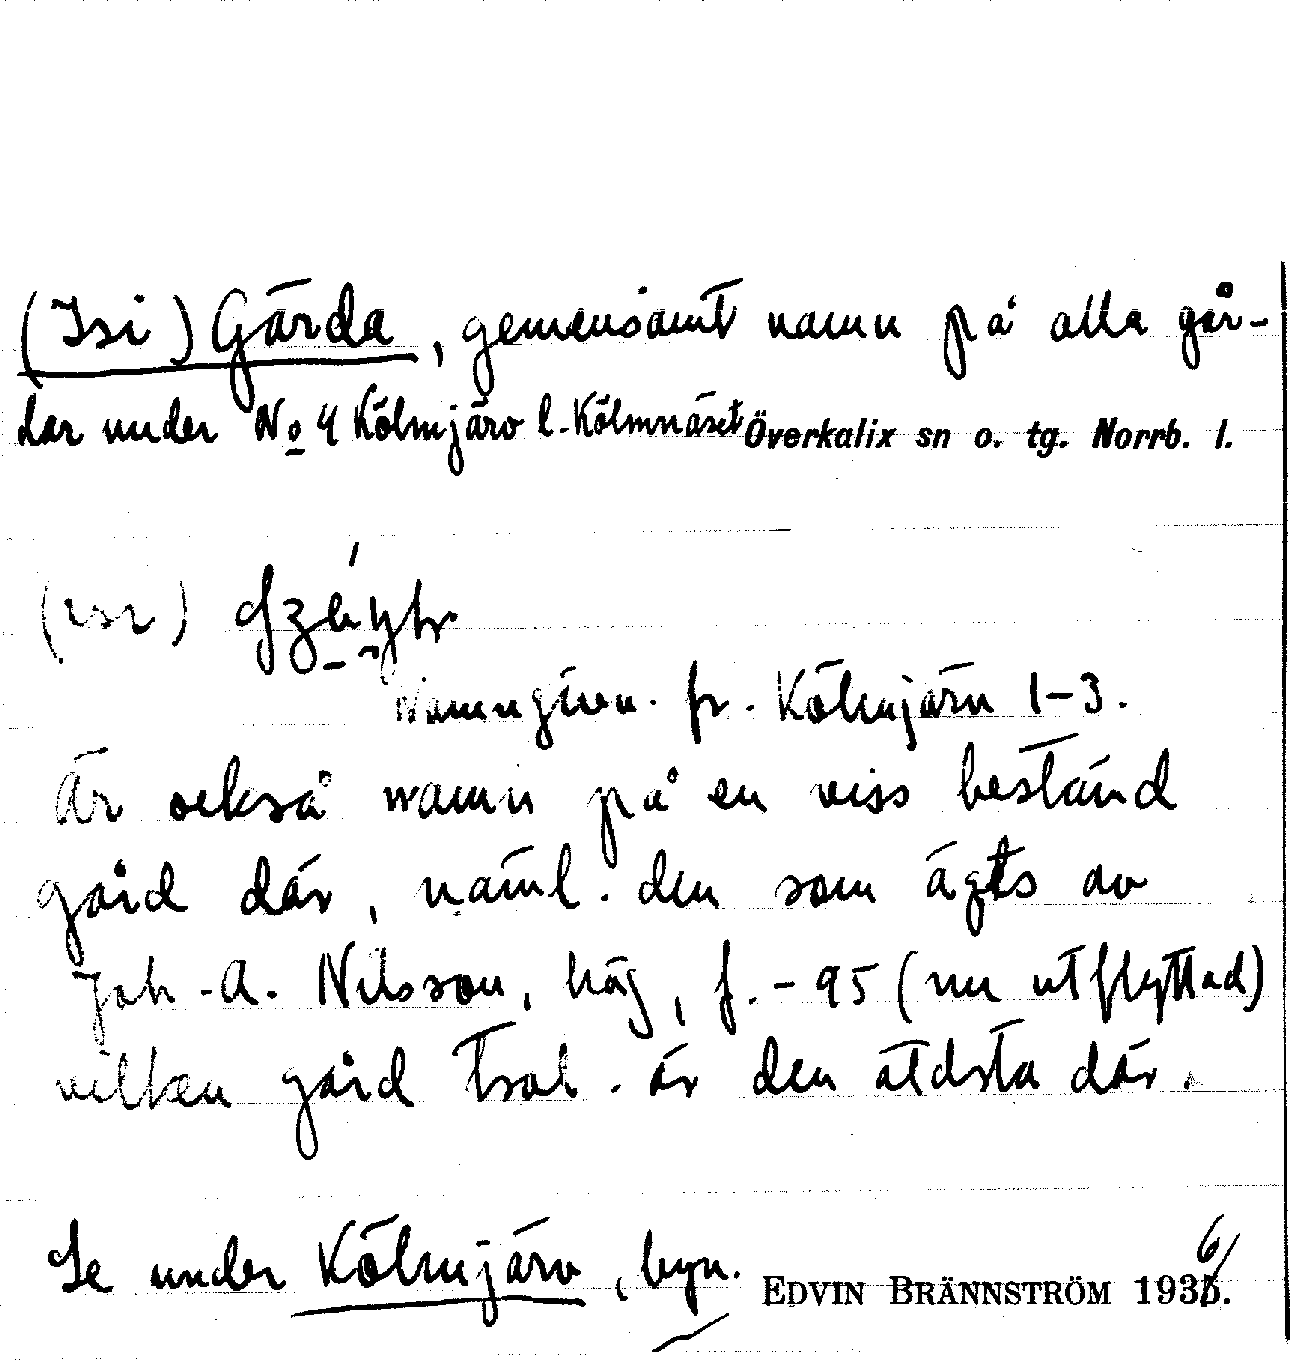 (Isi) Gärda, gemensamt namn på alla går-
dar under No 4 Kölmjärv l. Kölmnäset Överkalix sn o. tg. Norrb. l.
(isi)
Namngiven. fr. Kölmjärv 1-3.
Är också namn på en viss bestånd
gård där, näml. den som ägts av
Joh. A. Nilsson, häg, f. -95 (nu utflyttad)
vilken gård trol. är den äldsta där.
Se under Kölmjärv, byn. EDVIN BRÄNNSTRÖM 1936.